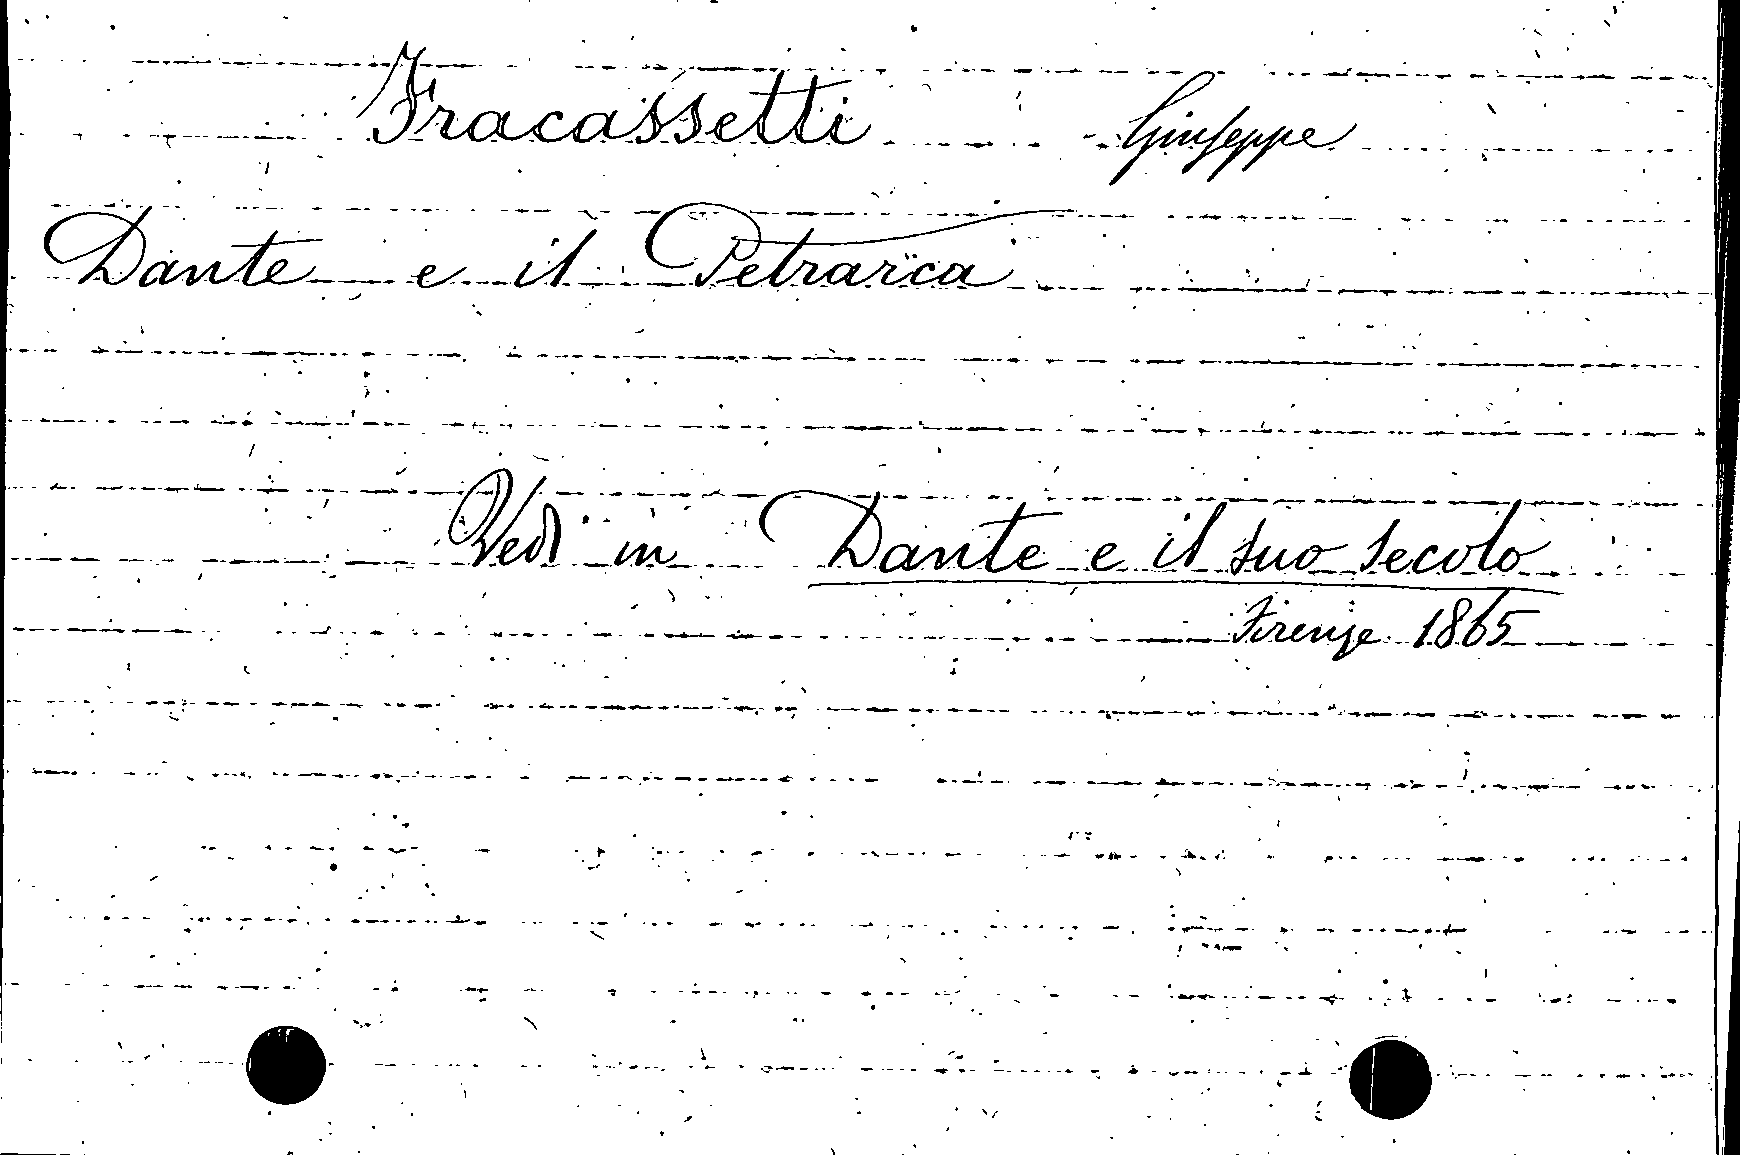 Fracassetti Giuseppe
Dante e il Petrarca
Vedi in Dante e il suo secolo
Firenze 1865